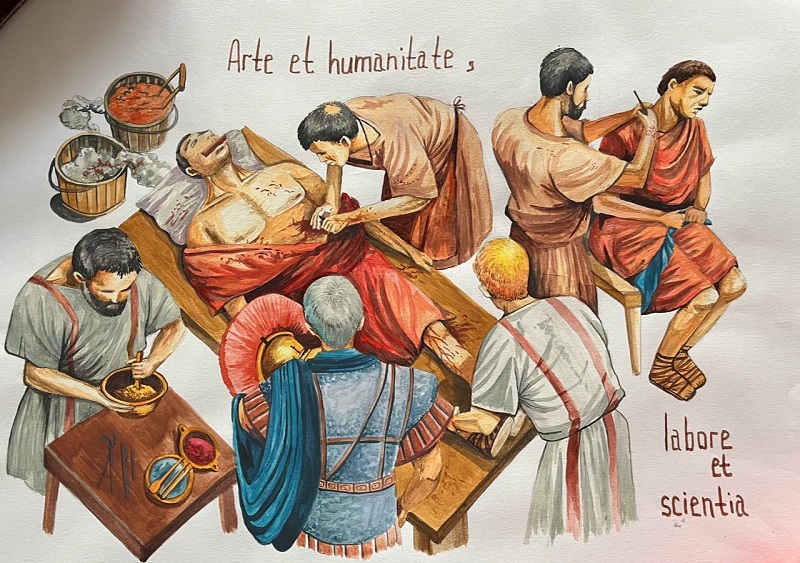 Arte et humanitate,
labore
et
scientia